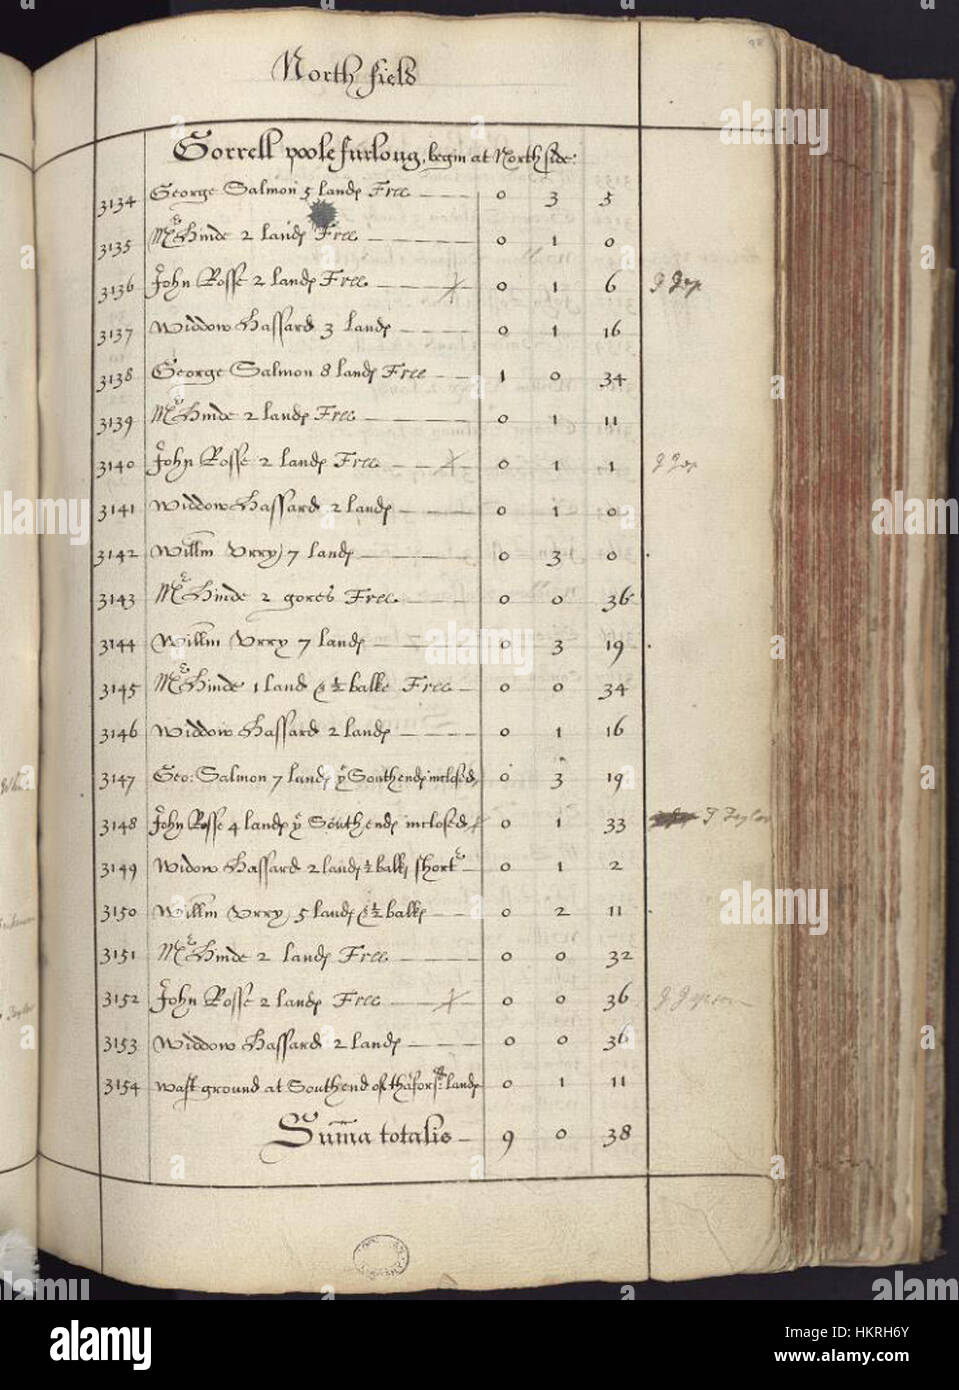 North field
Gorrell poole furlong, begin at North side:
3134 George Salmon 5 landp Free 0 3 5
3135 Mr Hinde 2 landp Free 0 1 0
3136 John Rosse 2 landp Free 0 1 6 J Jep
3137 Widdow Hassard 3 landp 0 1 16
3138 George Salmon 8 landp Free 1 0 34
3139 Mr Hinde 2 landp Free 0 1 11
3140 John Rosse 2 landp Free 0 1 1 J Jep
3141 Widdow Hassard 2 landp 0 1 0
3142 Willm Vrry 7 landp 0 3 0
3143 Mr Hinde 2 gores Free 0 0 36
3144 Willm Vrry 7 landp 0 3 19
3145 Mr Hinde 1 land & ½ balke Free 0 0 34
3146 Widdow Hassard 2 landp 0 1 16
3147 Geo: Salmon 7 landp ye South endp inclosed 0 3 19
3148 John Rosse 4 landp ye South endp inclosed 0 1 33 J Taylor
3149 Widow Hassard 2 landp ½ balkp short 0 1 2
3150 Willm Vrry 5 landp & ½ balkp 0 2 11
3151 Mr Hinde 2 landp Free 0 0 32
3152 John Rosse 2 landp Free 0 0 36 J Jepson
3153 Widdow Hassard 2 landp 0 0 36
3154 Wast ground at South end of thafors: landp 0 1 11
Sum̄a totalis 9 0 38
alamy
Image ID: HKRH6Y
www.alamy.com